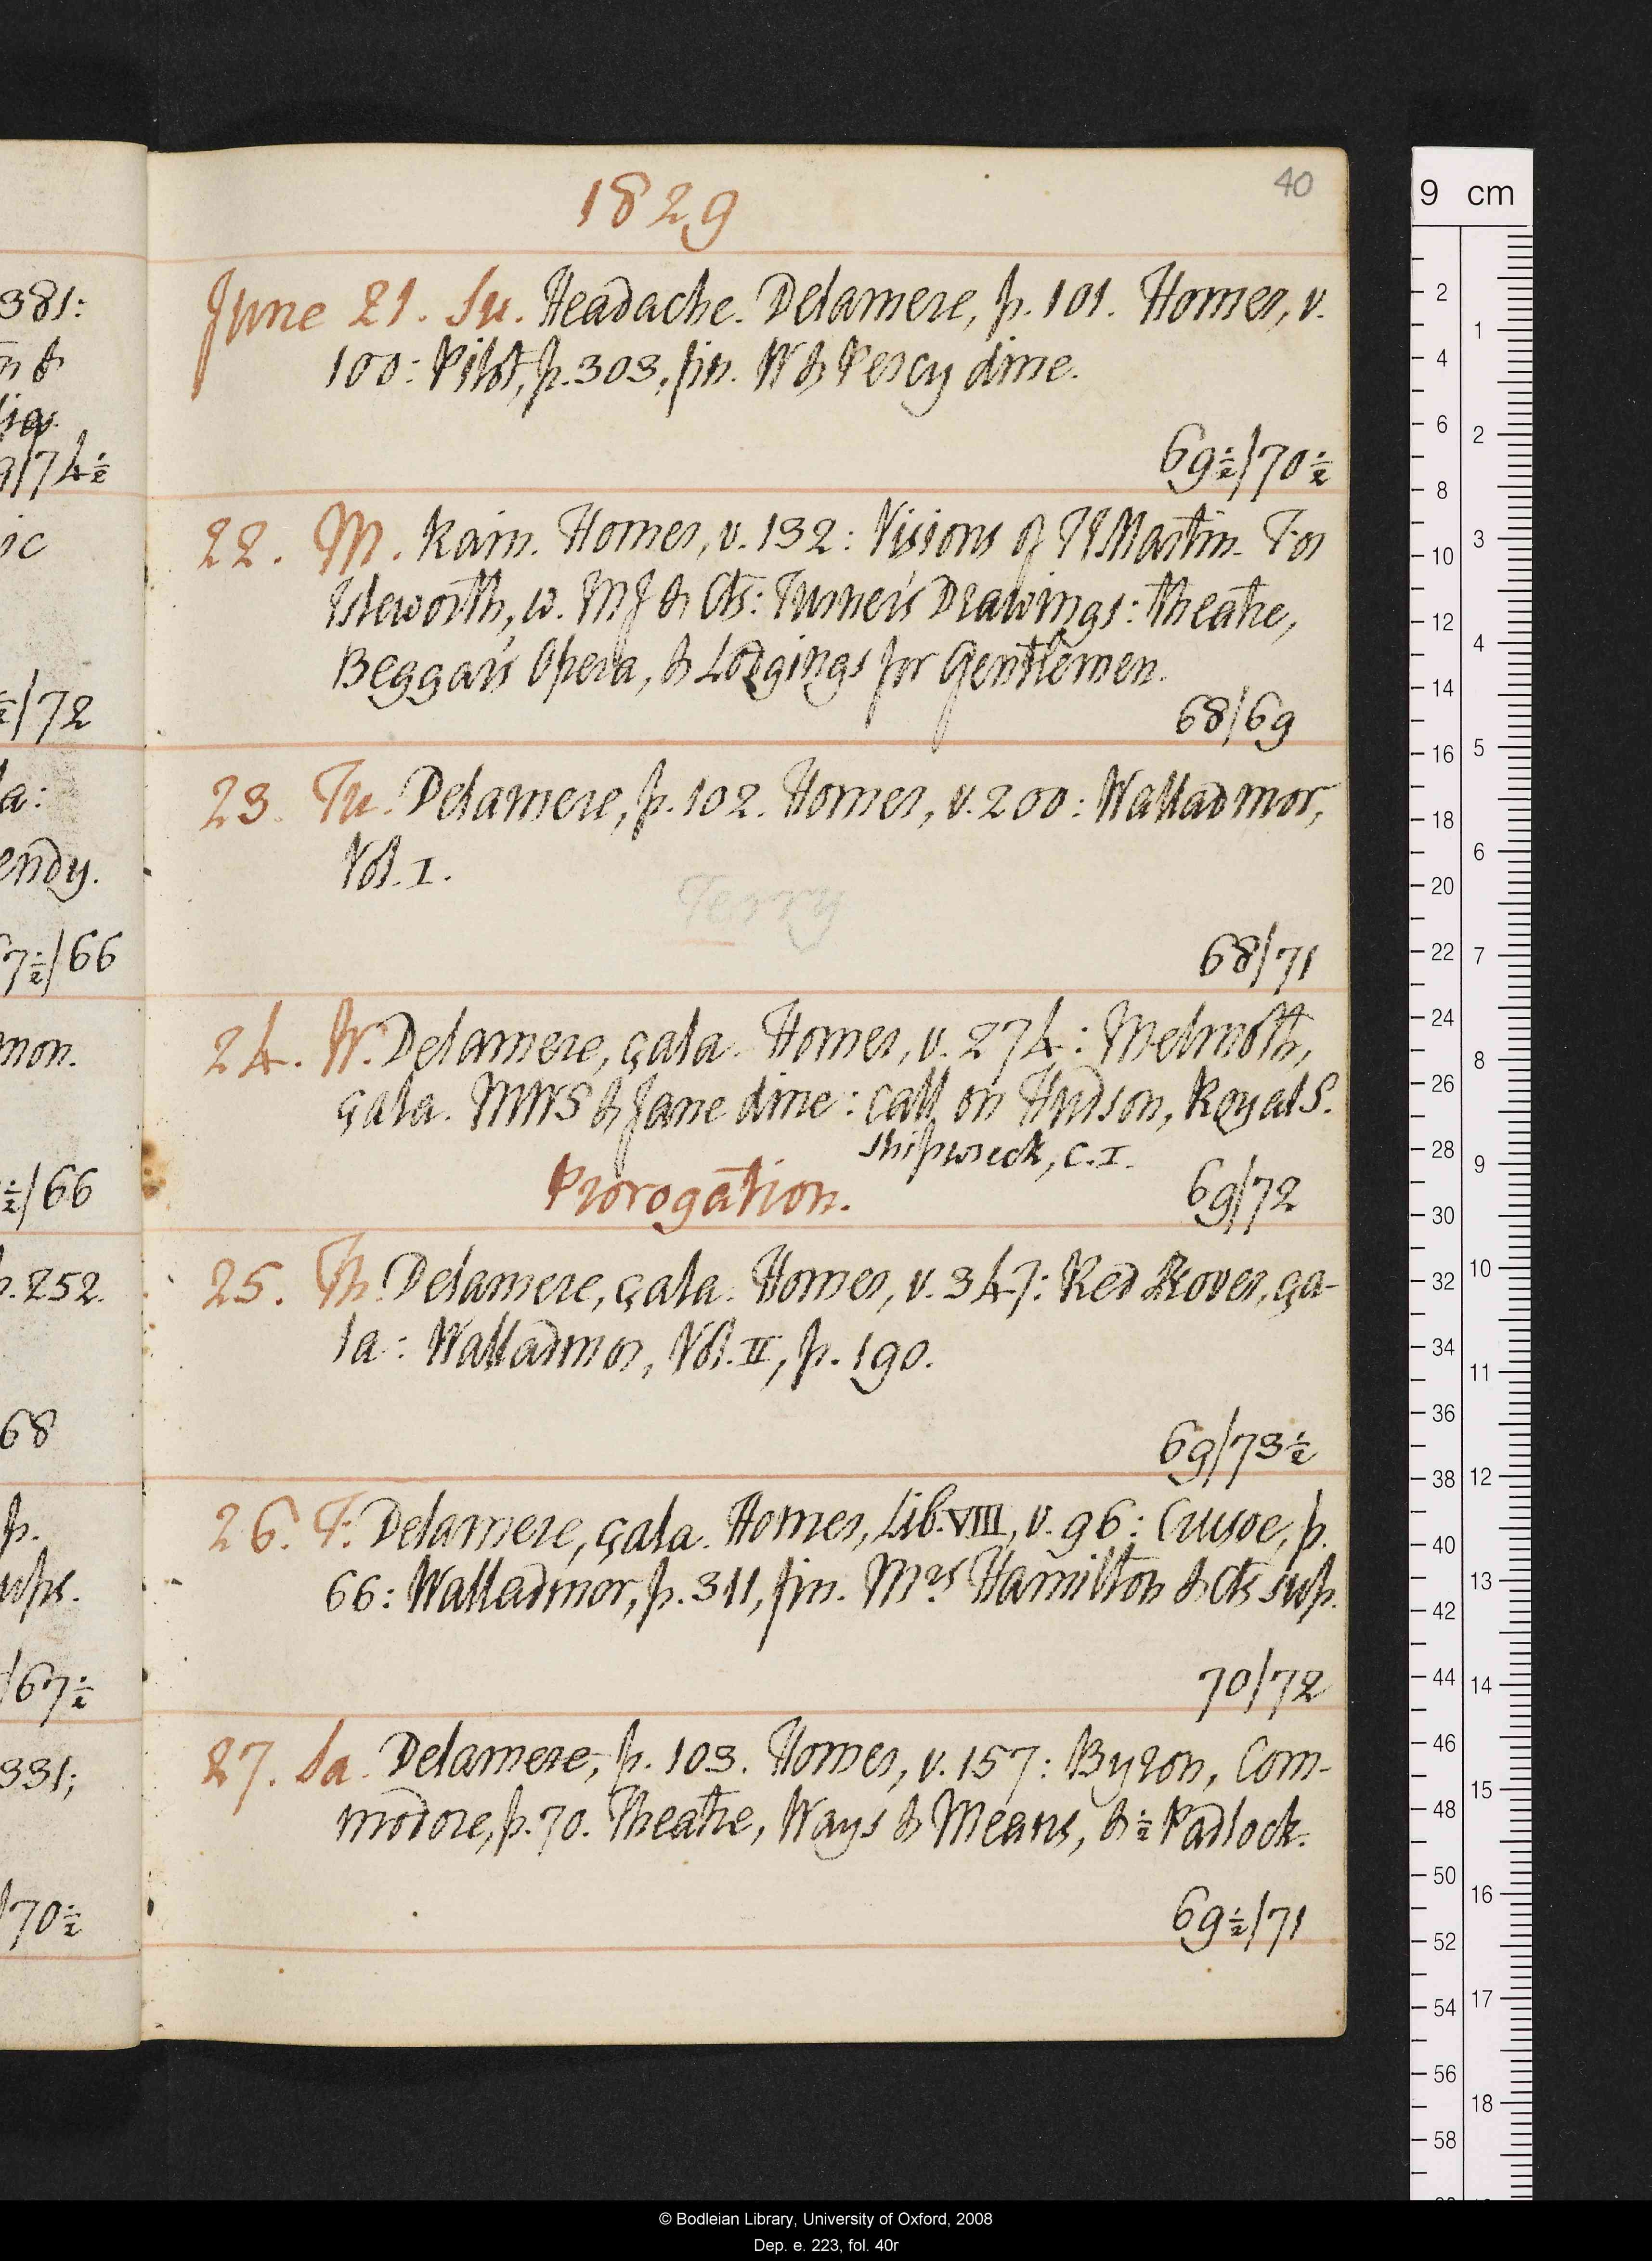 1829
40
June 21. Su. Headache. Delamere, p. 101. Homer, v.
100: Pilot, p. 303, fin. W & Percy dine.
69½/70½
22. M. Rain. Homer, v. 132: Visions of
Isleworth, w. MJ & Cts: Turner's Drawings: theatre,
Beggar's Opera, & Lodgings for Gentlemen.
68/69
23. Tu. Delamere, p. 102. Homer, v. 200: Walladmor,
Vol. I.
Terry
68/71
24. W. Delamere, çala. Homer, v. 274: Melmoth,
çala. MWS & Jane dine: call on Hudson, Royal S.
Shipwreck, C. I.
Prorogation.
69/72
25. Th. Delamere, çala. Homer, v. 347: Red Rover, ça-
la: Walladmor, Vol. II, p. 190.
69/73½
26. F. Delamere, çala. Homer, Lib. VIII, v. 96: Crusoe, p.
66: Walladmor, p. 311, fin. Mrs Hamilton & Cts sup.
70/72
27. Sa. Delamere, p. 103. Homer, v. 157: Byron, Com-
modore, p. 70. Theatre, Ways & Means, & ½ Padlock.
69½/71
381:
74½
/72
a:
endy.
7½/66
mon.
½/66
p. 252.
68
p.
/67½
331;
/70½
9 cm
2
4
6
8
10
12
14
16
18
20
22
24
26
28
30
32
34
36
38
40
42
44
46
48
50
52
54
56
58
1
2
3
4
5
6
7
8
9
10
11
12
13
14
15
16
17
18
© Bodleian Library, University of Oxford, 2008
Dep. e. 223, fol. 40r